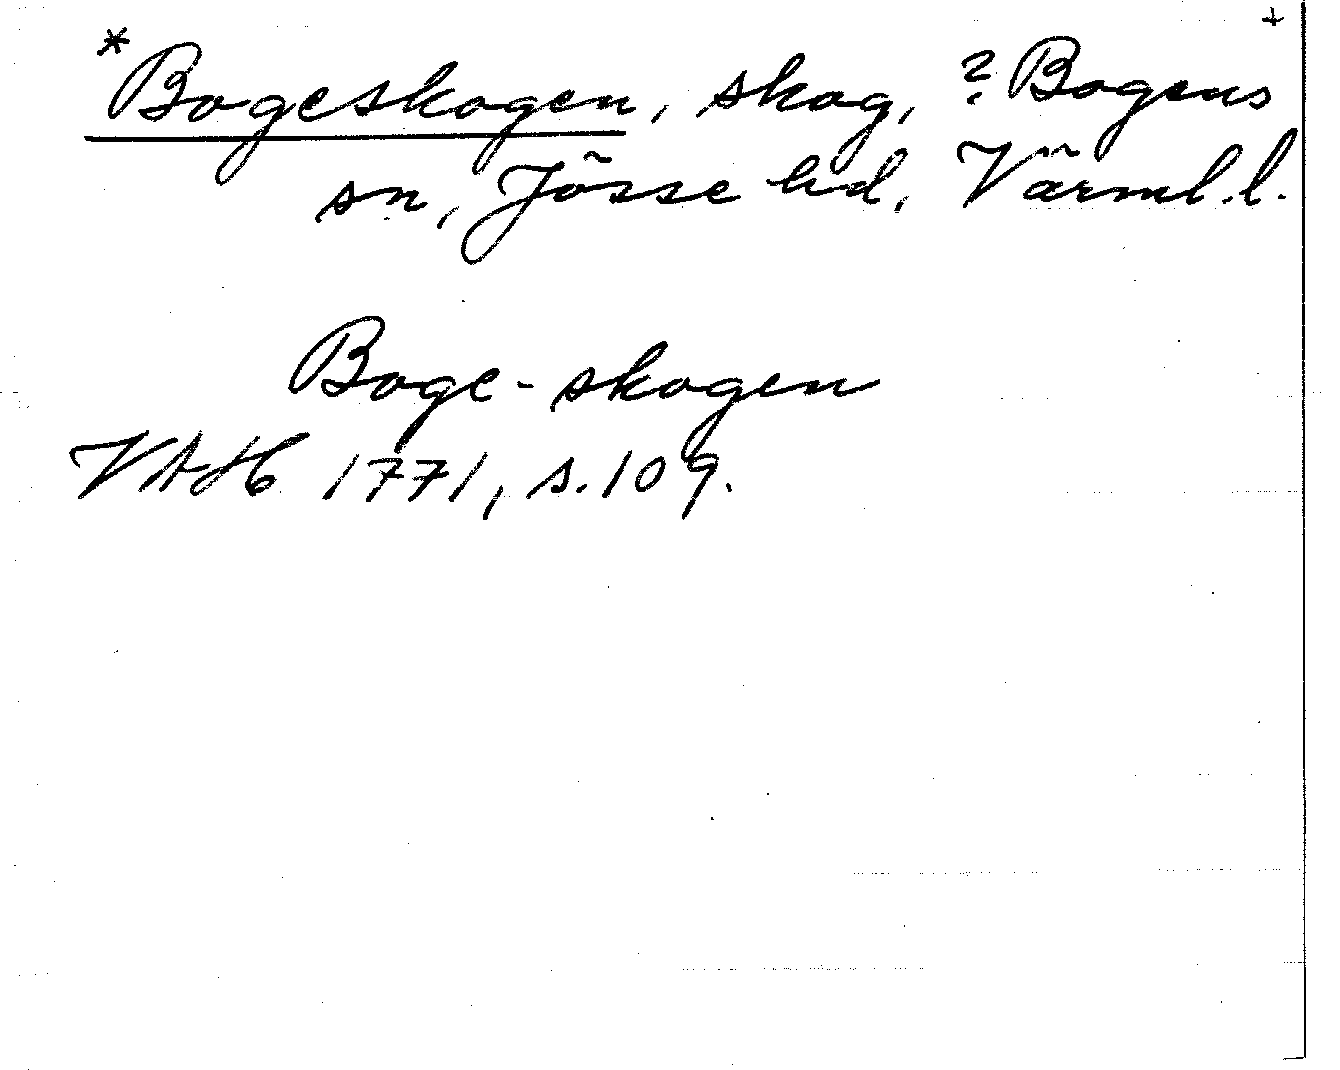 +
*Bogeskogen, skog, ? Bogens
sn, Jösse hd, Värml.l.
Boge-skogen
VAH 1771, s. 109.